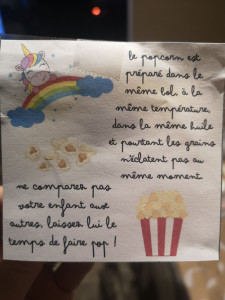 le popcorn est
préparé dans le
même bol, à la
même température,
dans la même huile
et pourtant les grains
n'éclatent pas au
même moment.
ne comparez pas
votre enfant aux
autres, laissez lui le
temps de faire pop !